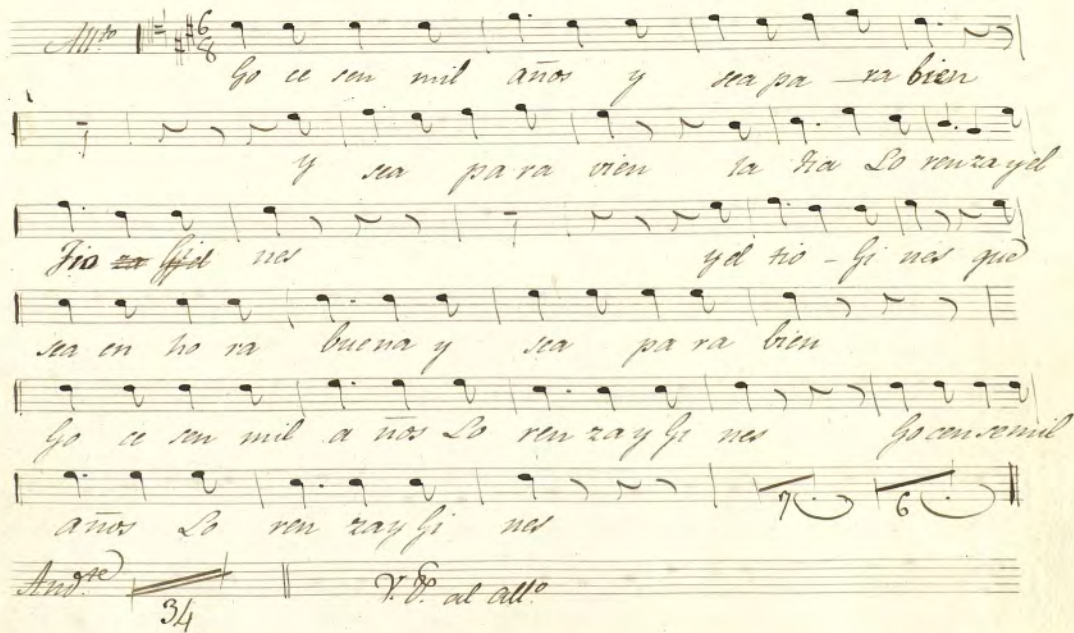 All.to 6 8
Go ce sen mil años y sea pa - ra bien
y sea pa ra vien la tia Lo renza yel
Tio nes yel tio - Gi nes que
sea en ho ra buena y sea pa ra bien
Go ce sen mil a ños Lo ren zay Gi nes Gocensemil
años Lo ren zay Gi nes
7 6
And.te
34
V. S. al all.o